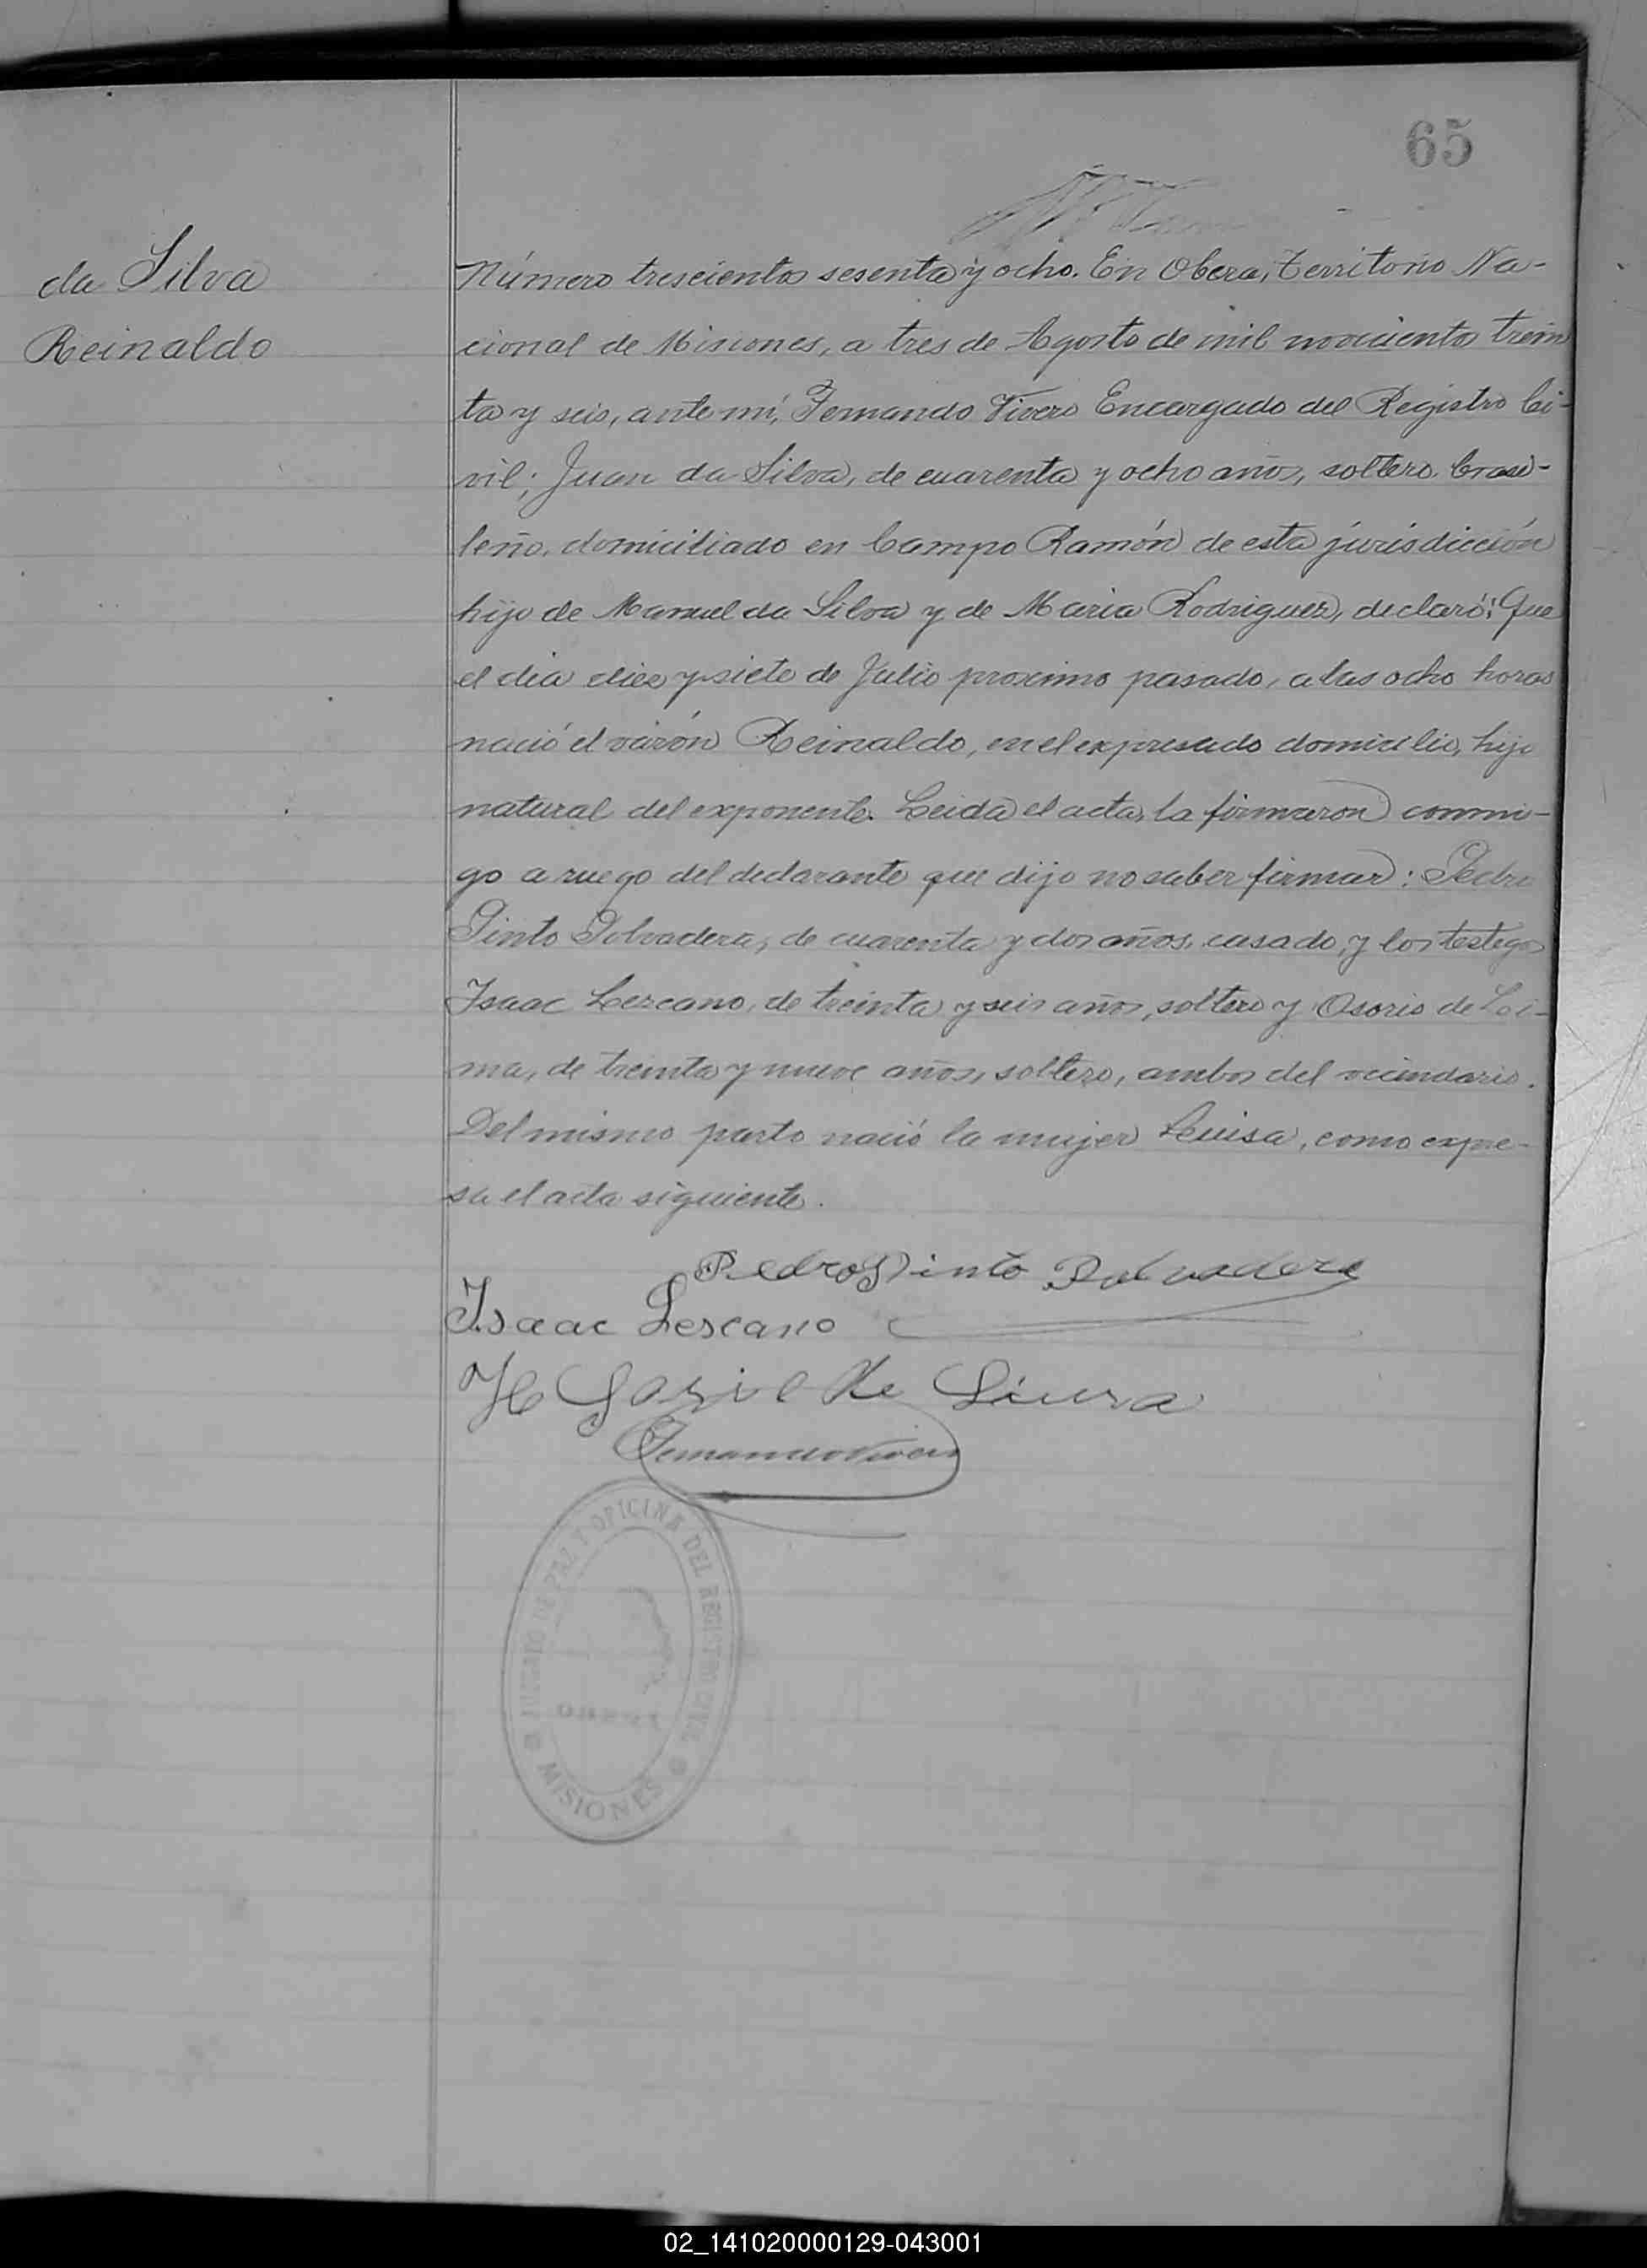 65
da Silva
Reinaldo
Número trescientos sesenta y ocho. En Obera, Territorio Na-
cional de Misiones, a tres de Agosto de mil novecientos trein
ta y seis, ante mí, Fernando Vivero Encargado del Registro Ci-
vil; Juan da Silva, de cuarenta y ocho años, soltero, brasi-
leño, domiciliado en Campo Ramón de esta jurisdicción
hijo de Manuel da Silva y de Maria Rodriguez, declaró: Que
el dia diez y siete de Julio proximo pasado, a las ocho horas
nació el varón Reinaldo, en el expresado domicilio, hijo
natural del exponente. Leida el acta, la firmaron conmi-
go a ruego del declarante que dijo no saber firmar: Pedro
Pinto Polvadera, de cuarenta y dos años, casado, y los testigos
Isaac Lezcano, de treinta y seis años, soltero y Osorio de Li-
ma, de treinta y nueve años, soltero, ambos del vecindario.
Del mismo parto nació la mujer Luisa, como expre-
sa el acta siguiente.
Pedro Pinto Polvadera
Isaac Lescano
de
Fernando Vivero
JUZGADO DE PAZ Y OFICINA DEL REGISTRO CIVIL
OBERA
MISIONES
02_141020000129-043001